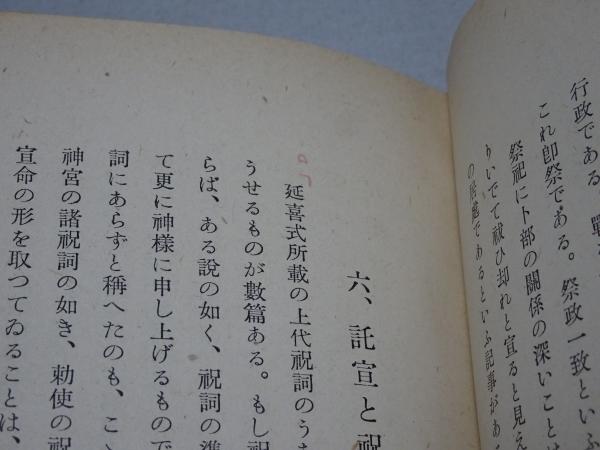 行政である。戰
これ卽祭である。祭政一致といふ
祭祀に卜部の關係の深いことは
りいでて祓ひ却れと宣ると見え
の根底であるといふ記事がある
六、託宣と祝
延喜式所載の上代祝詞のうち
うせるものが數篇ある。もし祝
らば、ある說の如く、祝詞の準
て更に神樣に申し上げるもので
詞にあらずと稱へたのも、こ
神宮の諸祝詞の如き、勅使の祝
宣命の形を取つてゐることは、